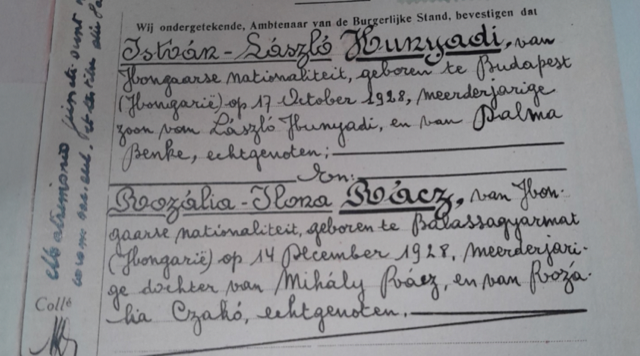 dat
Wij ondergetekende, Ambtenaar van de Burgerlijke Stand, bevestigen dat
István-László Hunyadi, van
Hongaarse nationaliteit, geboren te Budapest
(Hongarië) op 17 October 1928, meerderjarige
zoon van László Hunyadi, en van Palma
Benke, echtgenoten;
En:
Rozália-Ilona Rácz, van Hon-
gaarse nationaliteit, geboren te Balassagyarmat
(Hongarië) op 14 December 1928, meerderjari-
ge dochter van Mihály Rácz, en van Rozá-
lia Czakó, echtgenoten.
Matrimonio juncti sunt
coram
Colla